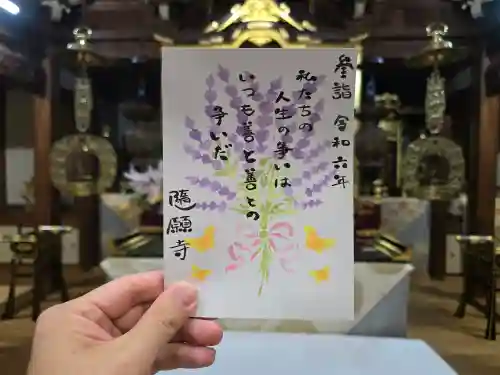 参詣 令和六年
私たちの
人生の争いは
いつも善と善との
争いだ
随願寺